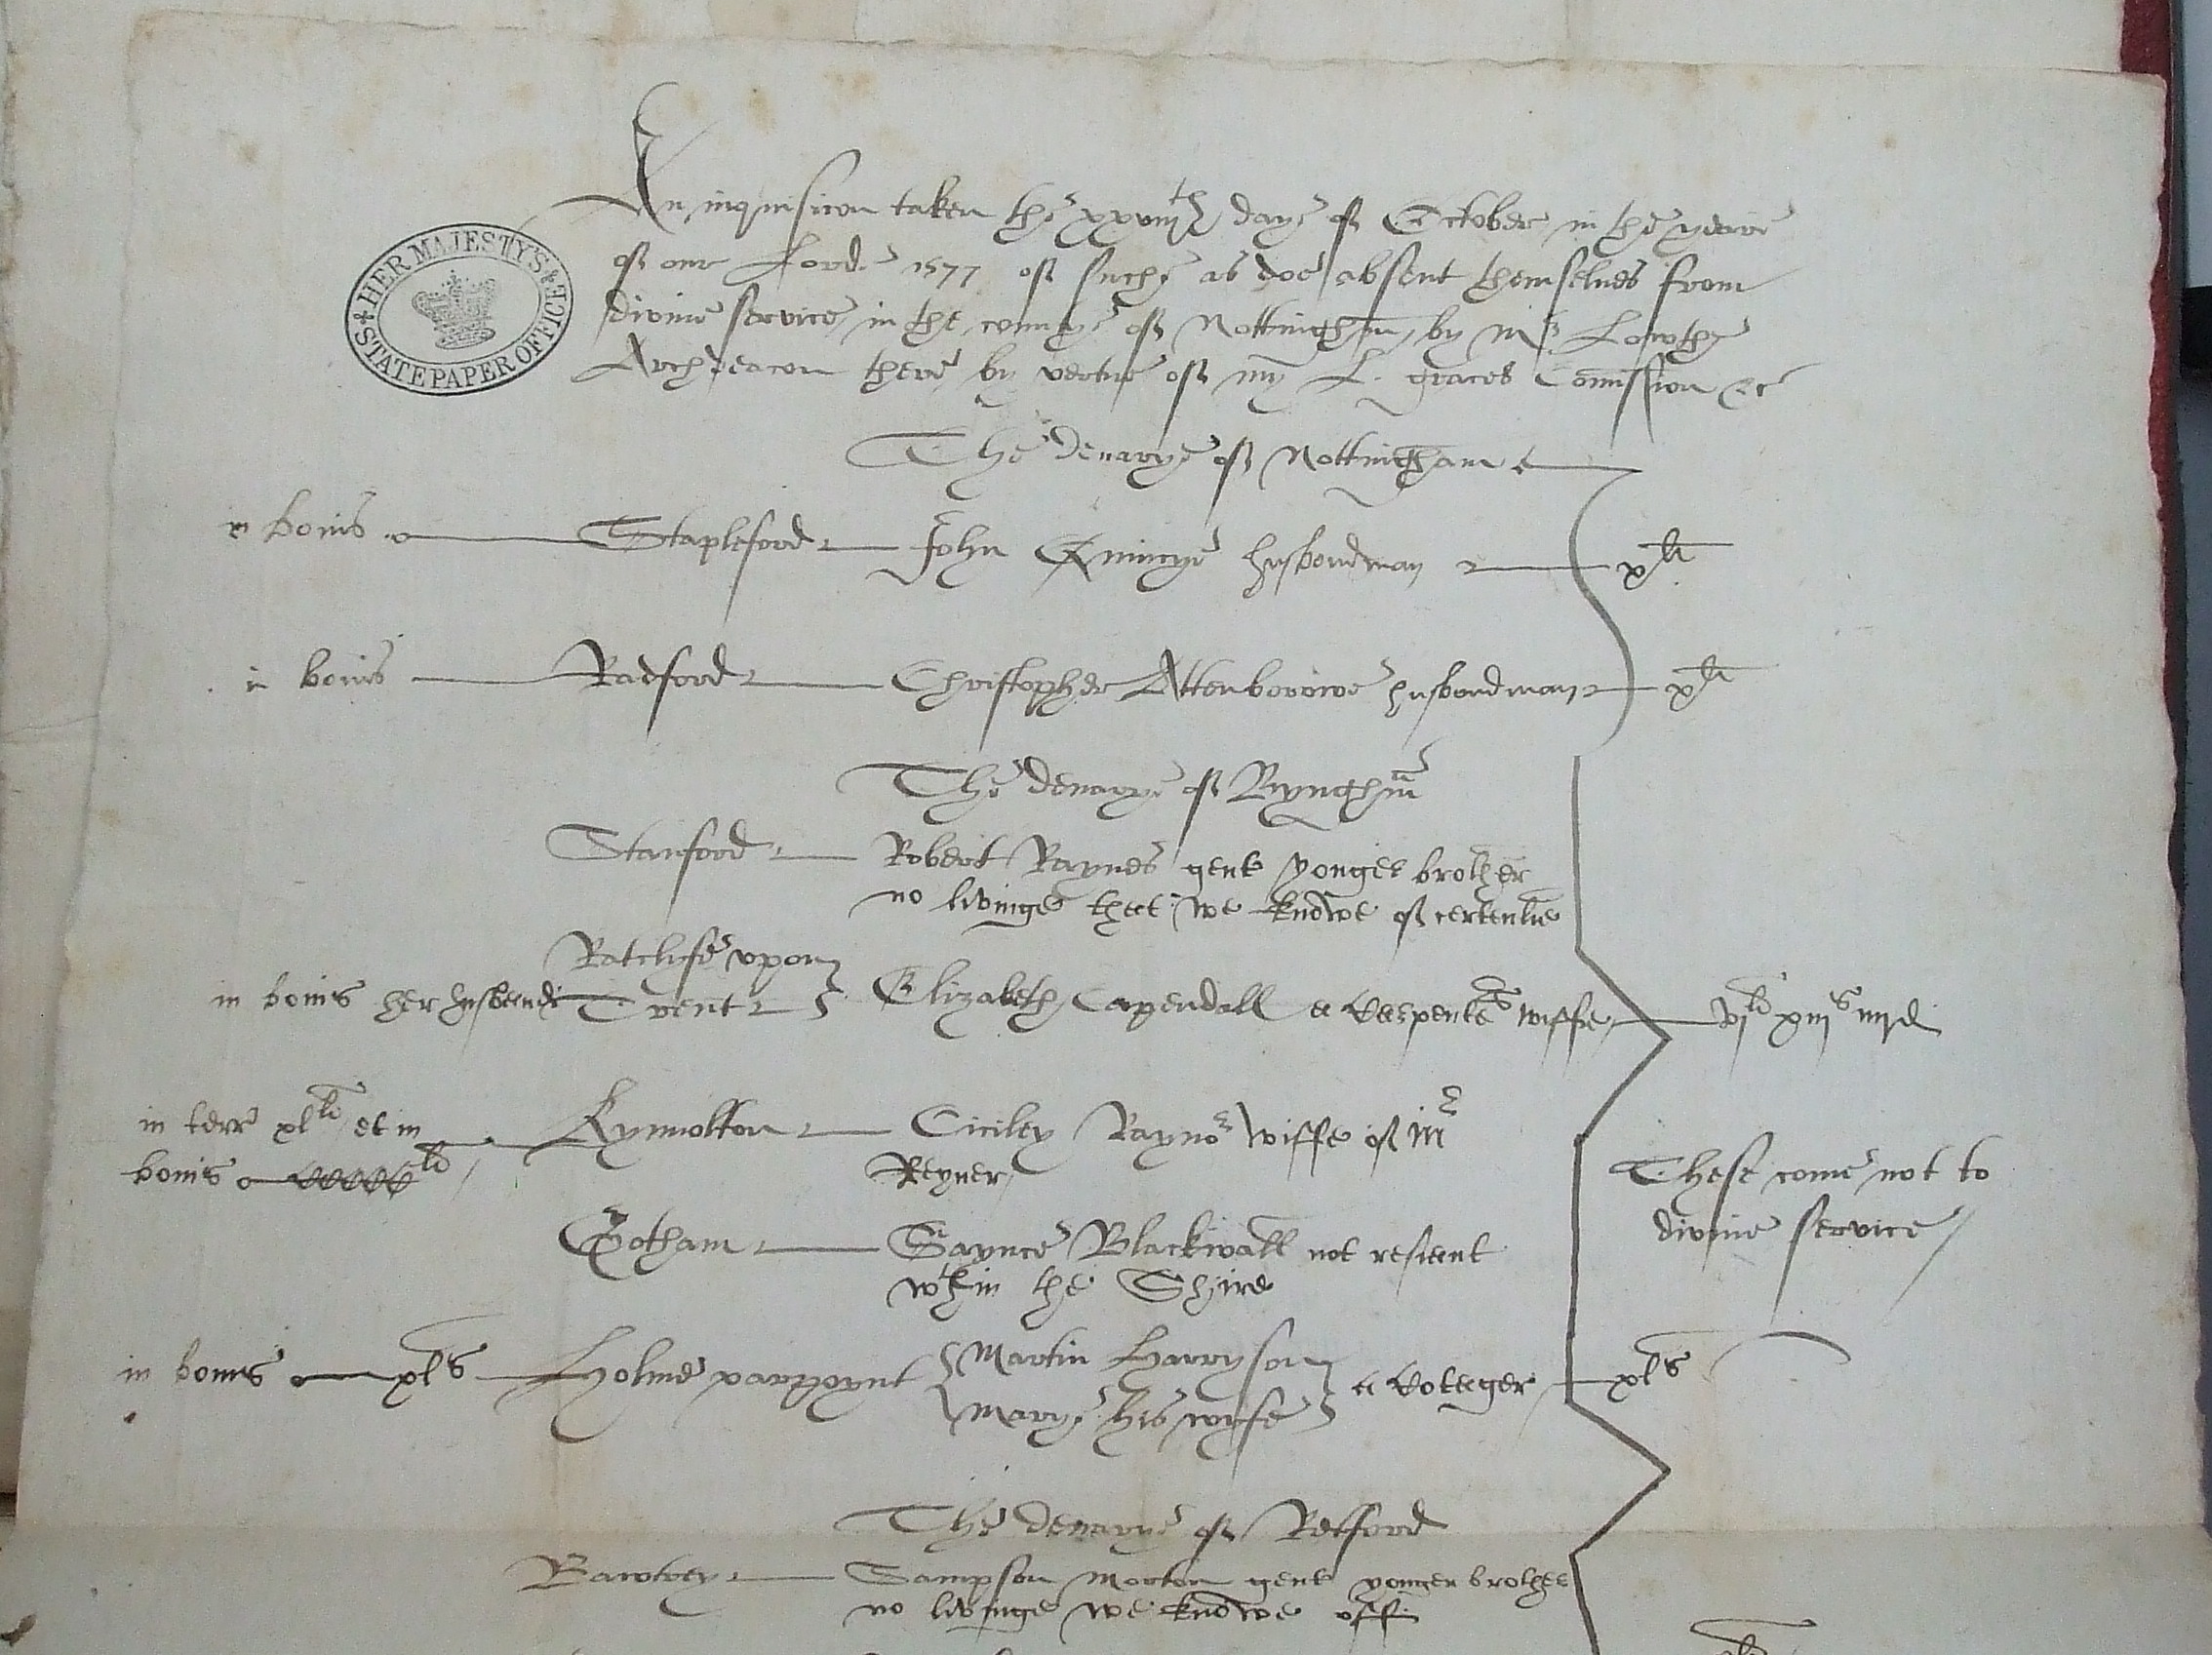 An inquisicon taken the xxviijth daye of October in the yeare
of our Lord 1577 of suche as doe absent themselves from
divine service in the countye of Nottingham, by Mr Lowthe
Archdeacon there by vertue of my L. graces Comission &c
HER MAJESTY'S STATE PAPER OFFICE
The denarye of Nottingham
in bonis Stapleford John Quincye husbondman xli
in bonis Radford Christopher Attenborowe husbondman xli
The denarye of Byngham
Stanford Robert Raynes gent yonger brother
no livinge that we knowe of certentie
Ratclife upon
in bonis her husbands Trent Elizabeth Capendall a carpenters wiffe vjli xiijs iiijd
in terr xlli et in Kynnolton Ciciley Raynor wiffe of Mr
bonis li Reyner
These come not to
divine service
Gotham Blackwall not resient
wthin the Shire
in bonis xls Holme parpoynt Martin Harryson
Marye his wyfe a cotager xls
The denarye of Retford
Bawtrey Sampson Morton gent yonger brother
no livinge we knowe off